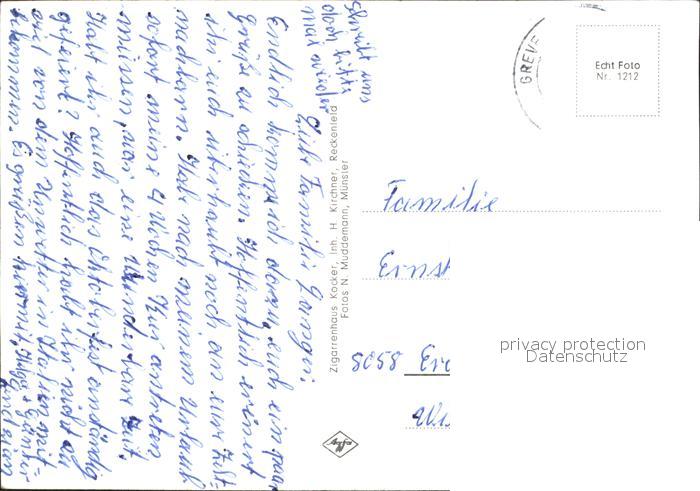 schreibt uns
doch bitte
mal wieder
Liebe Familie
Endlich komm ich dazu, euch ein paar
Grüße zu schicken. Hoffentlich erinnert
ihr euch überhaupt noch an eure Zelt-
nachbarn. Hab nach meinem Urlaub
sofort meine 4 Wochen Kur antreten
müssen, war eine wunderbare Zeit.
Habt ihr auch das Oktoberfest anständig
gefeiert? Hoffentlich habt ihr nicht all
viel von dem Unwetter in Italien mit-
bekommen. Es grüßen
Zigarrenhaus Kocker, Inh. H. Kirchner, Reckenfeld
Fotos N. Muddemann, Münster
Agfa
GREVE
Echt Foto
Nr. 1212
Familie
Ernst
8058
privacy protection
Datenschutz